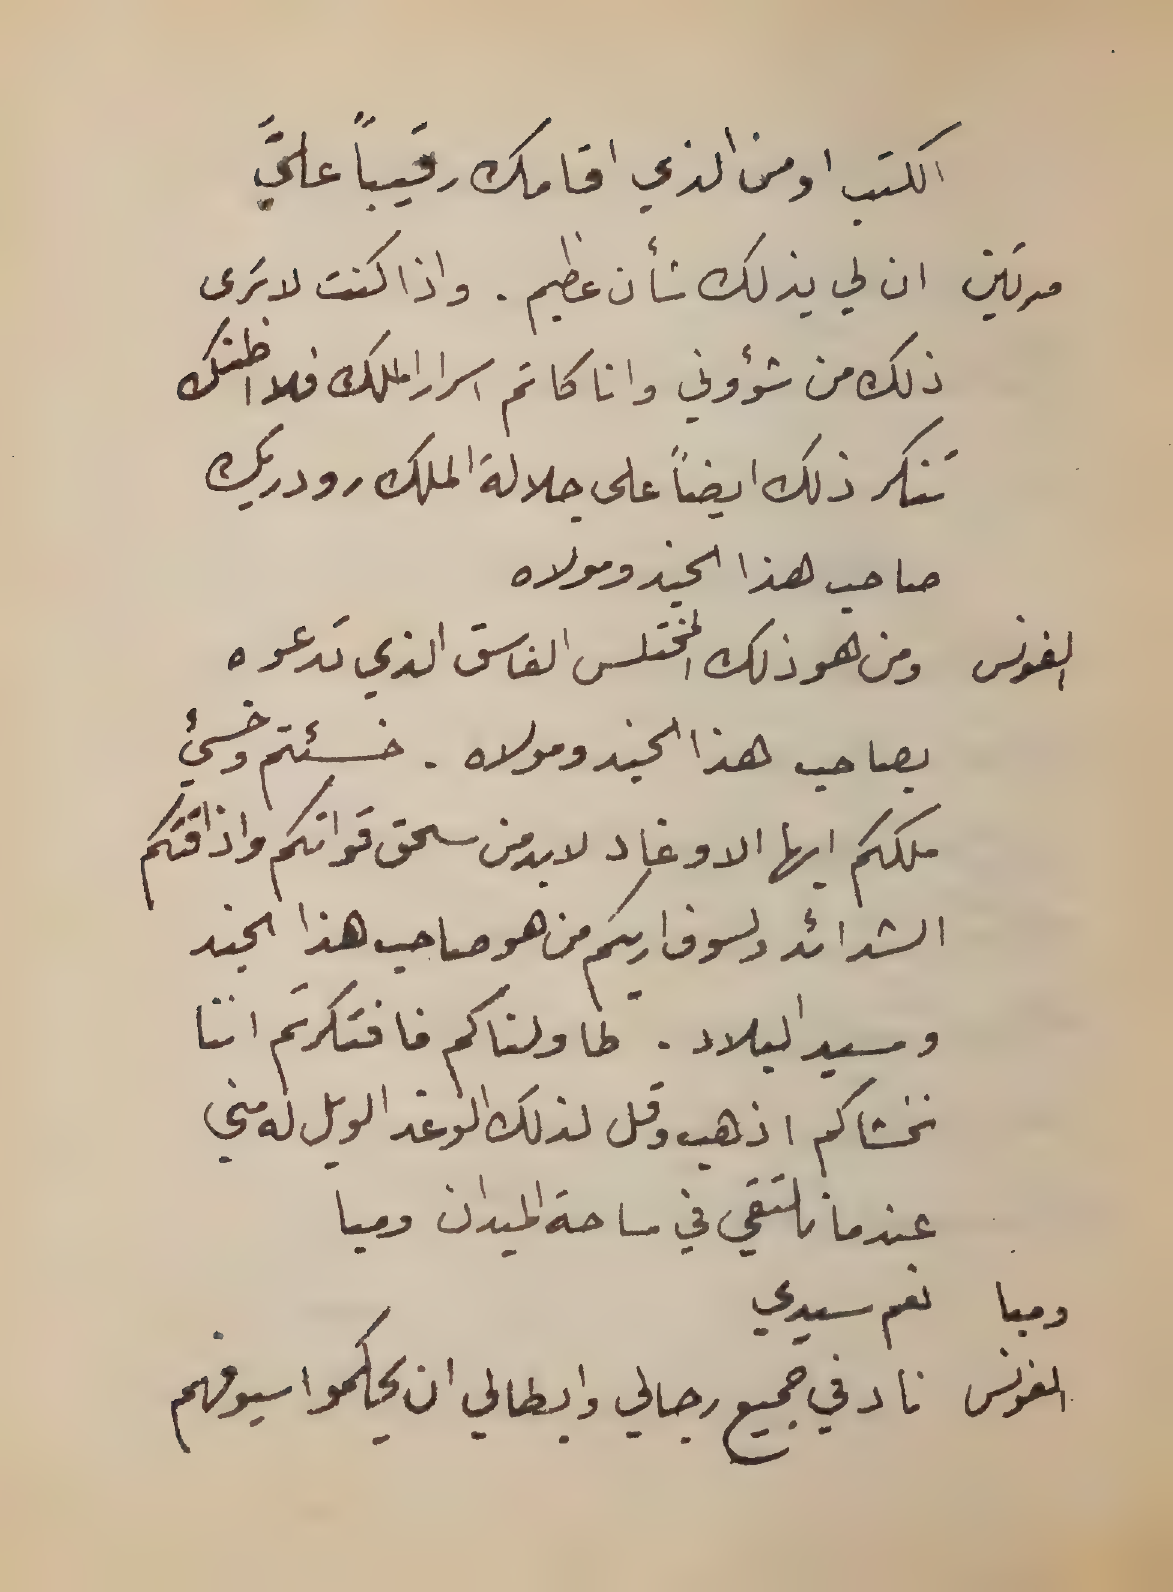 الكتب او من الذي اقامك رقيباً عليَّ
مرتين ان لي بذلك شأن عظيم . واذا كنت لا ترى
ذلك من شؤوني وانا كاتم اسرار الملك فلا اظنك
تنكر ذلك ايضاً على جلالة الملك رودريك
صاحب هذا الجند ومولاه
الفونس ومن هو ذلك المختلس الفاسق الذي تدعوه
بصاحب هذا الجند ومولاه . خسئتم وخسئ
ملككم ايها الاوغاد لا بد من سحق قواتكم واذاقتكم
الشدائد ولسوف اريكم من هو صاحب هذا الجند
وسيد البلاد . طاولناكم فافتكرتم اننا
نخشاكم اذهب وقل لذلك الوغد الويل له مني
عندما نلتقي في ساحة الميدان ومبا
ومبا نعم سيدي
الفونس ناد في جميع رجالي وابطالي ان يحكموا سيوفهم